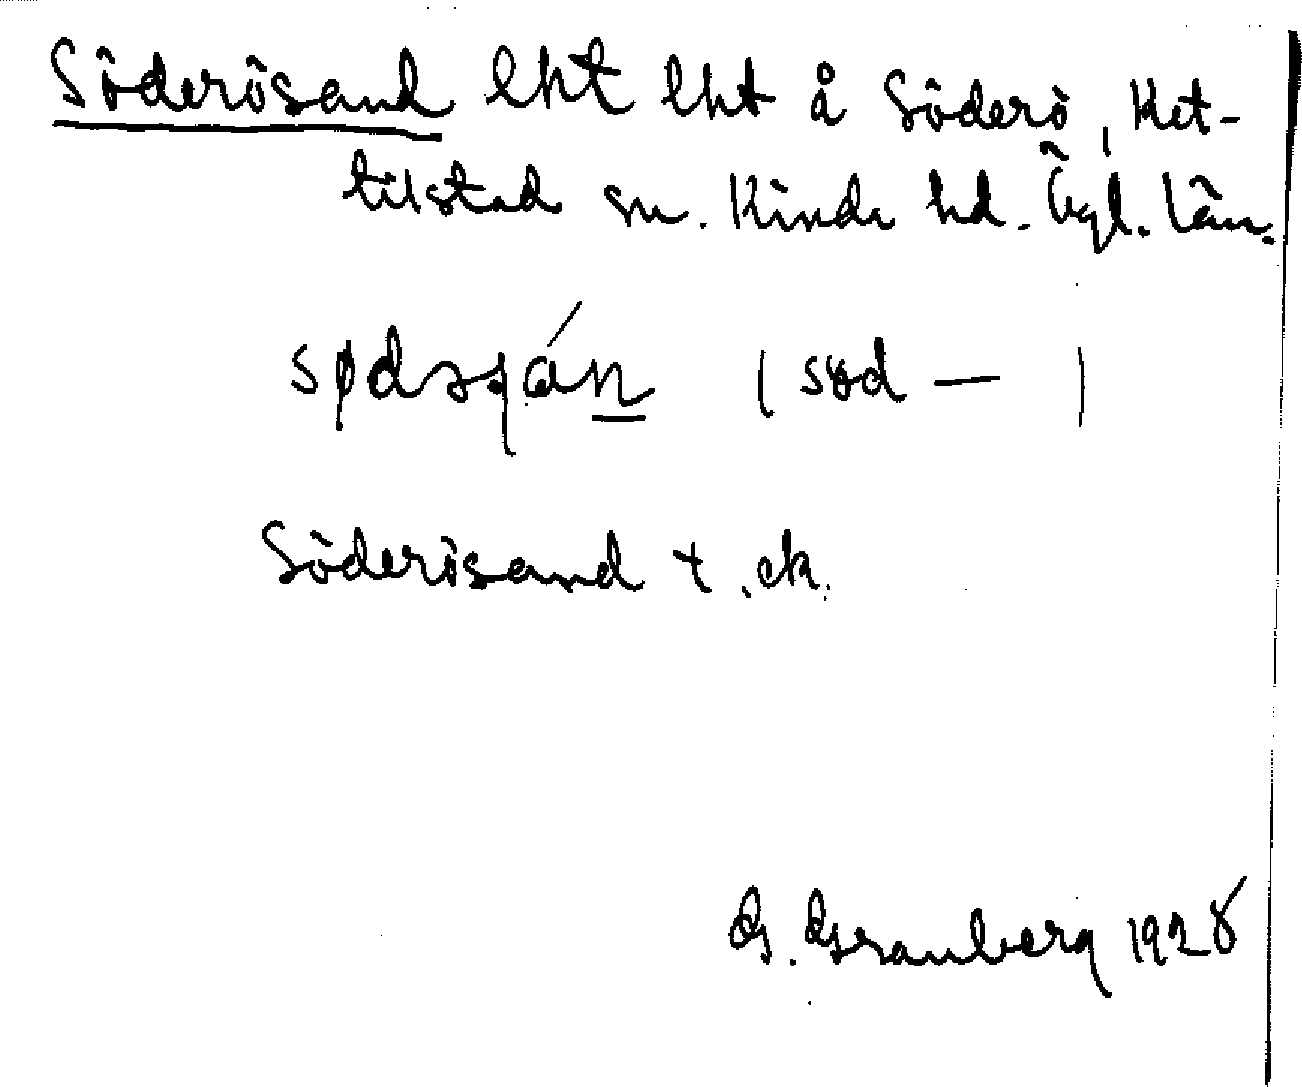 Söderösand lht lht å Söderö, Ket-
tilstad sn. Kinda hd. Ögl. län.
(sød — )
Söderösand t. ek.
G. Granberg 1928